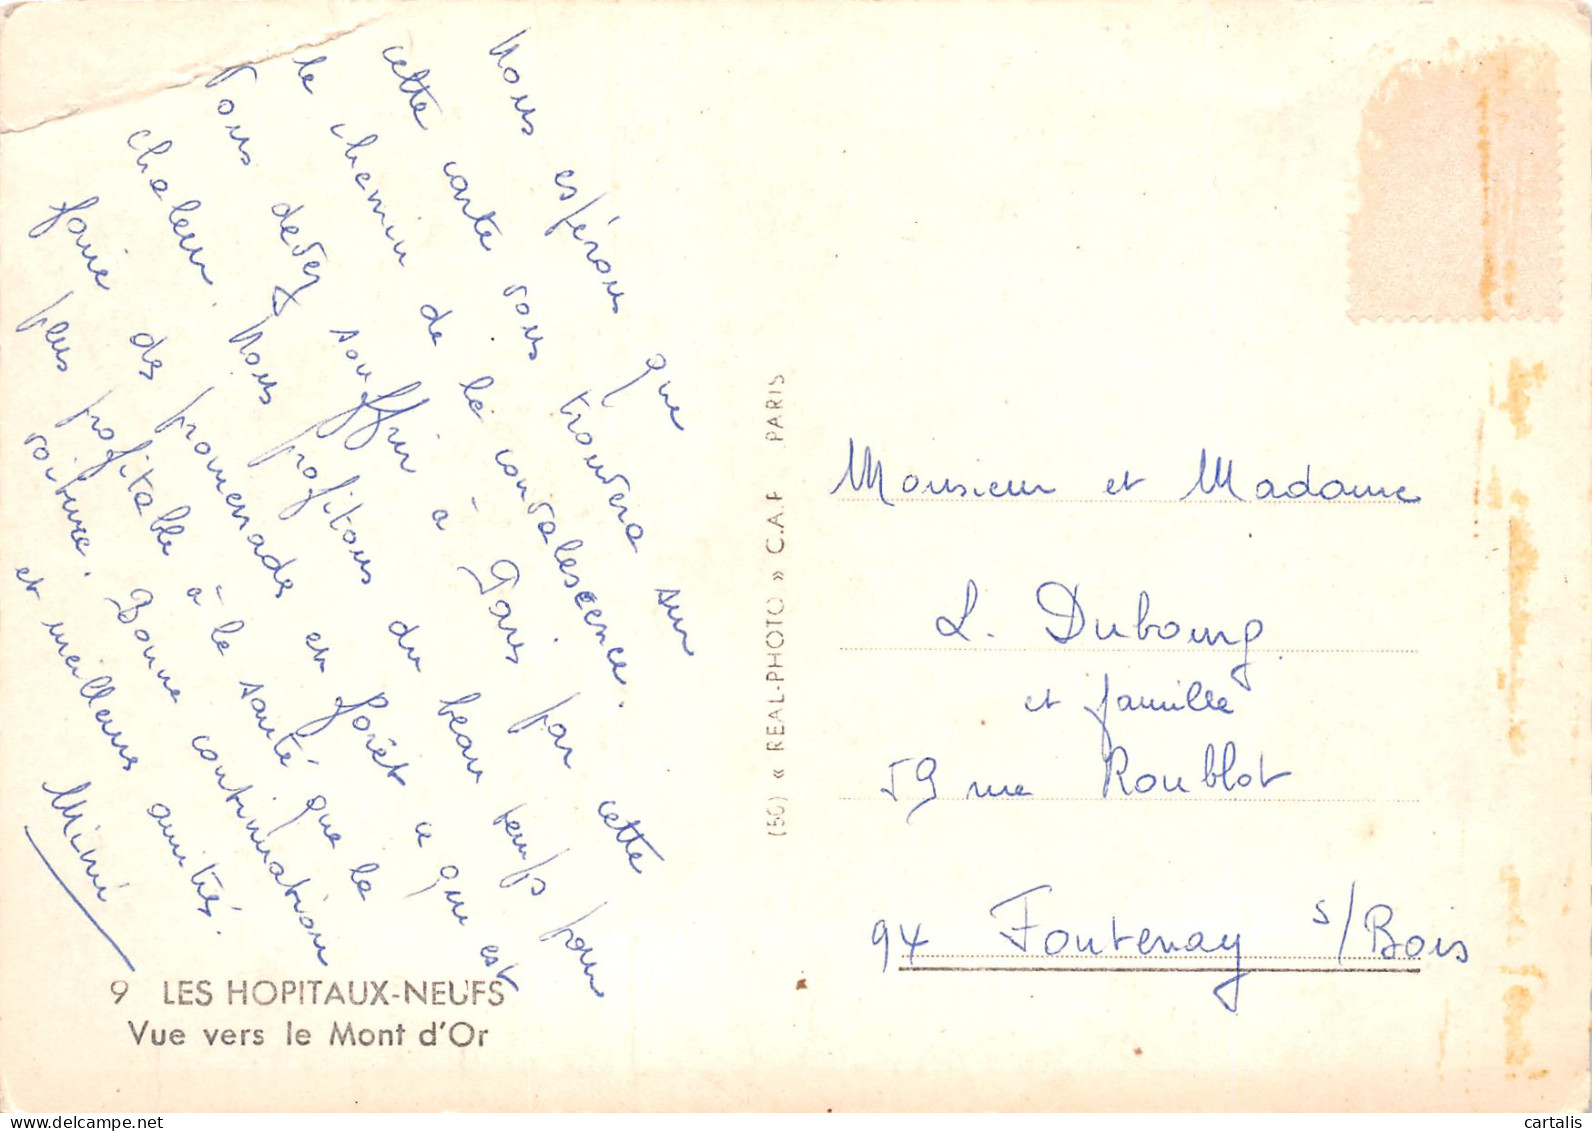 Nous espérons que
cette carte vous trouvera sur
le chemin de la convalescence.
Vous devez souffrir à Paris par cette
chaleur. Nous profitons du beau temps pour
faire des promenades en forêt ce qui est
plus profitable à la santé que la
voiture. Bonne continuation
et meilleures amitiés.
Mimi
9 LES HOPITAUX-NEUFS
Vue vers le Mont d'Or
(50) « REAL-PHOTO » C.A.P. PARIS
Monsieur et Madame
L. Dubourg
et famille
59 rue Roublot
94 Fontenay s/Bois
cartalis